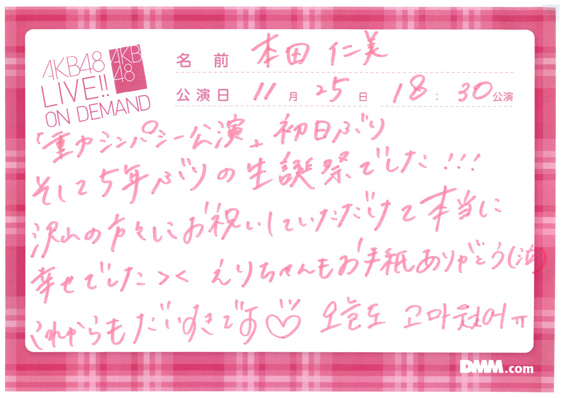 AKB48
LIVE!!
ON DEMAND
AKB
48
名前 本田 仁美
公演日 11月25日 18:30公演
「重力シンパシー公演」初日ぶり
そして5年ぶりの生誕祭でした!!!
沢山の方々にお祝いしていただけて本当に
幸せでした>< えりちゃんもお手紙ありがとう(泣)
これからもだいすきです♡ 오늘도 고마웠어ㅠ
DMM.com